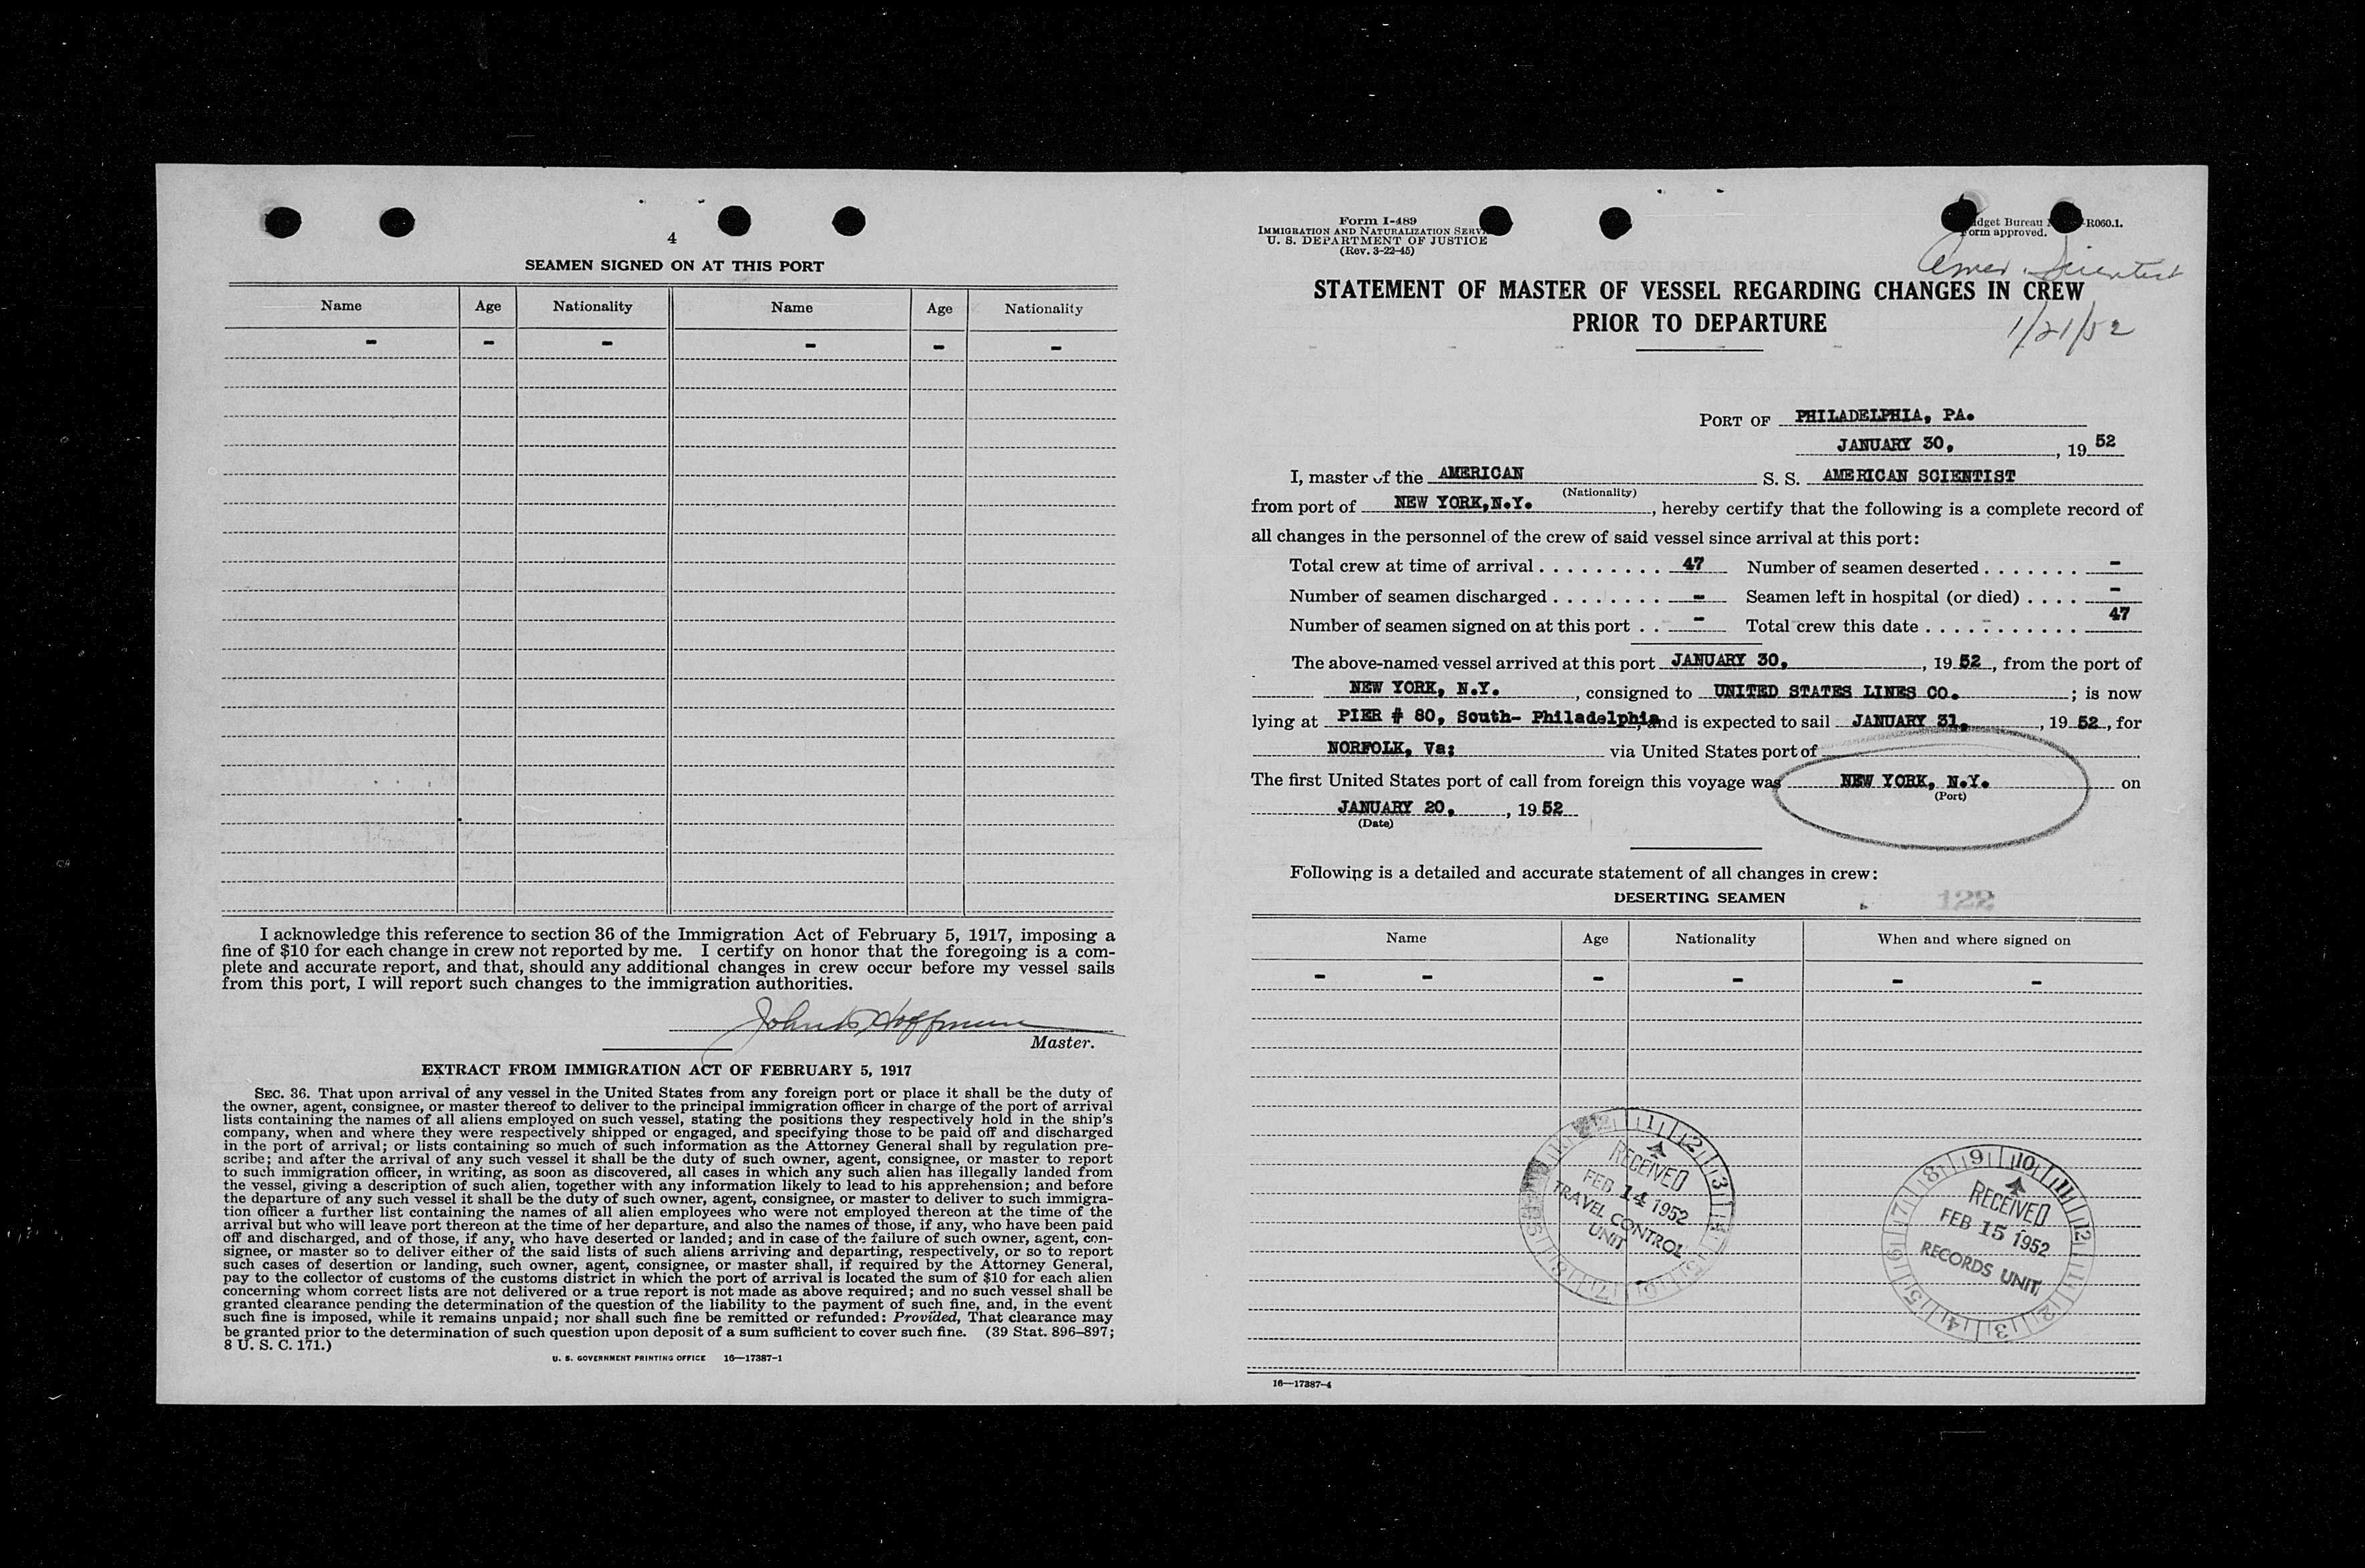 4
SEAMEN SIGNED ON AT THIS PORT
Name Age Nationality Name Age Nationality
- - - - - -
I acknowledge this reference to section 36 of the Immigration Act of February 5, 1917, imposing a
fine of $10 for each change in crew not reported by me. I certify on honor that the foregoing is a com-
plete and accurate report, and that, should any additional changes in crew occur before my vessel sails
from this port, I will report such changes to the immigration authorities.
Master.
EXTRACT FROM IMMIGRATION ACT OF FEBRUARY 5, 1917
SEC. 36. That upon arrival of any vessel in the United States from any foreign port or place it shall be the duty of
the owner, agent, consignee, or master thereof to deliver to the principal immigration officer in charge of the port of arrival
lists containing the names of all aliens employed on such vessel, stating the positions they respectively hold in the ship's
company, when and where they were respectively shipped or engaged, and specifying those to be paid off and discharged
in the port of arrival; or lists containing so much of such information as the Attorney General shall by regulation pre-
scribe; and after the arrival of any such vessel it shall be the duty of such owner, agent, consignee, or master to report
to such immigration officer, in writing, as soon as discovered, all cases in which any such alien has illegally landed from
the vessel, giving a description of such alien, together with any information likely to lead to his apprehension; and before
the departure of any such vessel it shall be the duty of such owner, agent, consignee, or master to deliver to such immigra-
tion officer a further list containing the names of all alien employees who were not employed thereon at the time of the
arrival but who will leave port thereon at the time of her departure, and also the names of those, if any, who have been paid
off and discharged, and of those, if any, who have deserted or landed; and in case of the failure of such owner, agent, con-
signee, or master so to deliver either of the said lists of such aliens arriving and departing, respectively, or so to report
such cases of desertion or landing, such owner, agent, consignee, or master shall, if required by the Attorney General,
pay to the collector of customs of the customs district in which the port of arrival is located the sum of $10 for each alien
concerning whom correct lists are not delivered or a true report is not made as above required; and no such vessel shall be
granted clearance pending the determination of the question of the liability to the payment of such fine, and, in the event
such fine is imposed, while it remains unpaid; nor shall such fine be remitted or refunded: Provided, That clearance may
be granted prior to the determination of such question upon deposit of a sum sufficient to cover such fine. (39 Stat. 896-897;
8 U. S. C. 171.)
U. S. GOVERNMENT PRINTING OFFICE 16—17387-1
Form I-489
IMMIGRATION AND NATURALIZATION SERV
U. S. DEPARTMENT OF JUSTICE
(Rev. 3-22-45)
dget Bureau R060.1.
orm approved.
Amer. Scientist
STATEMENT OF MASTER OF VESSEL REGARDING CHANGES IN CREW
PRIOR TO DEPARTURE
1/21/52
PORT OF PHILADELPHIA, PA.
JANUARY 30, , 19 52
I, master of the AMERICAN S. S. AMERICAN SCIENTIST
(Nationality)
from port of NEW YORK,N.Y. , hereby certify that the following is a complete record of
all changes in the personnel of the crew of said vessel since arrival at this port:
Total crew at time of arrival . . . . . . . . . 47 Number of seamen deserted . . . . . . . -
Number of seamen discharged . . . . . . . . - Seamen left in hospital (or died) . . . . -
Number of seamen signed on at this port . . - Total crew this date . . . . . . . . . . . 47
The above-named vessel arrived at this port JANUARY 30, , 19 52 , from the port of
NEW YORK, N.Y. , consigned to UNITED STATES LINES CO. ; is now
lying at PIER # 80, South- Philadelphia, and is expected to sail JANUARY 31, , 19 52 , for
NORFOLK, Va; via United States port of
The first United States port of call from foreign this voyage was NEW YORK, N.Y. on
(Port)
JANUARY 20, , 19 52
(Date)
Following is a detailed and accurate statement of all changes in crew:
DESERTING SEAMEN
122
Name Age Nationality When and where signed on
- - - - - -
RECEIVED
FEB 14 1952
TRAVEL CONTROL
UNIT
RECEIVED
FEB 15 1952
RECORDS UNIT
16—17387-4